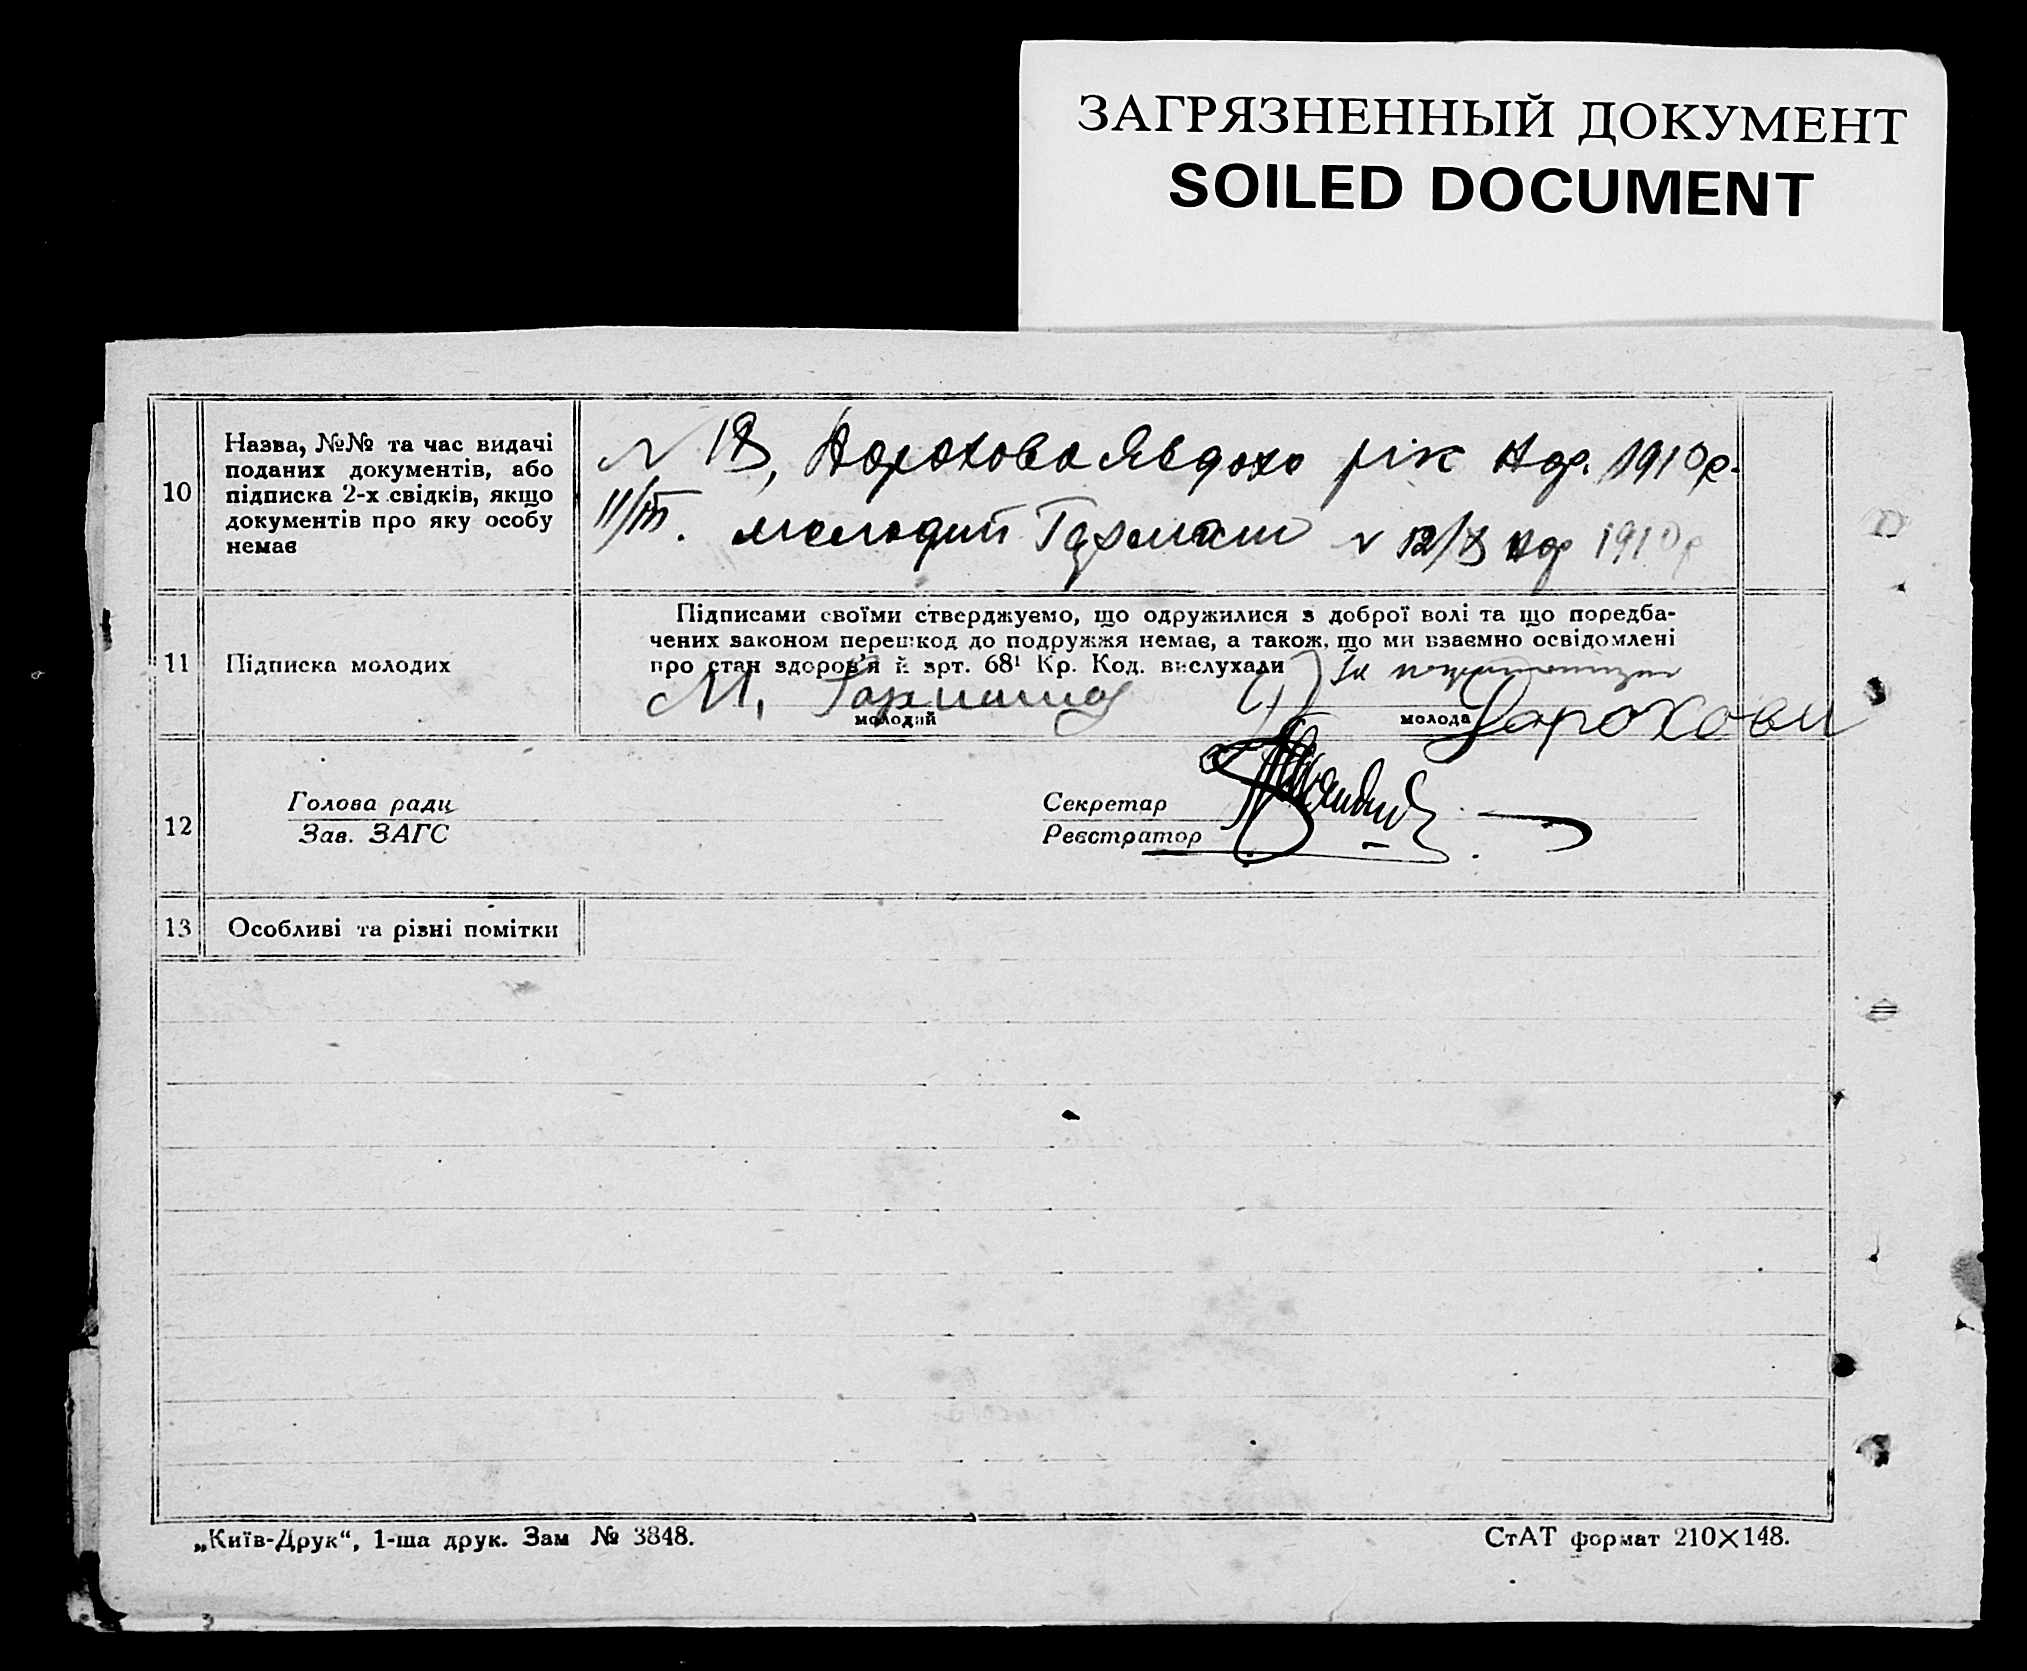 ЗАГРЯЗНЕННЫЙ ДОКУМЕНТ
SOILED DOCUMENT
10
Назва, №№ та час видачі
поданих документів, або
підписка 2-х свідків, якщо
документів про яку особу
немає
Явдоха рік 1910 р.
11/III. молодий 1910 р
11
Підписка молодих
Підписами своїми стверджуємо, що одружилися з доброї волі та що поредба-
чених законом перешкод до подружжя немає, а також, що ми взаємно освідомлені
про стан здоров'я й арт. 68¹ Кр. Код. вислухали
За
М.
молодий
молода
Дорохови
12
Голова ради
Зав. ЗАГС
Секретар
Реєстратор
13
Особливі та різні помітки
„Київ-Друк“, 1-ша друк. Зам № 3848.
СтАТ формат 210×148.